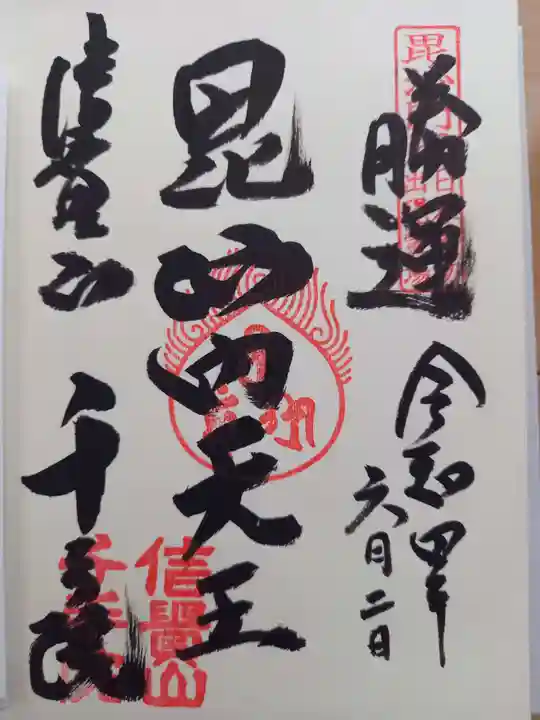 勝運
令和四年
六月二日
毘沙門天王
信貴山 千手院
信貴山
千手院